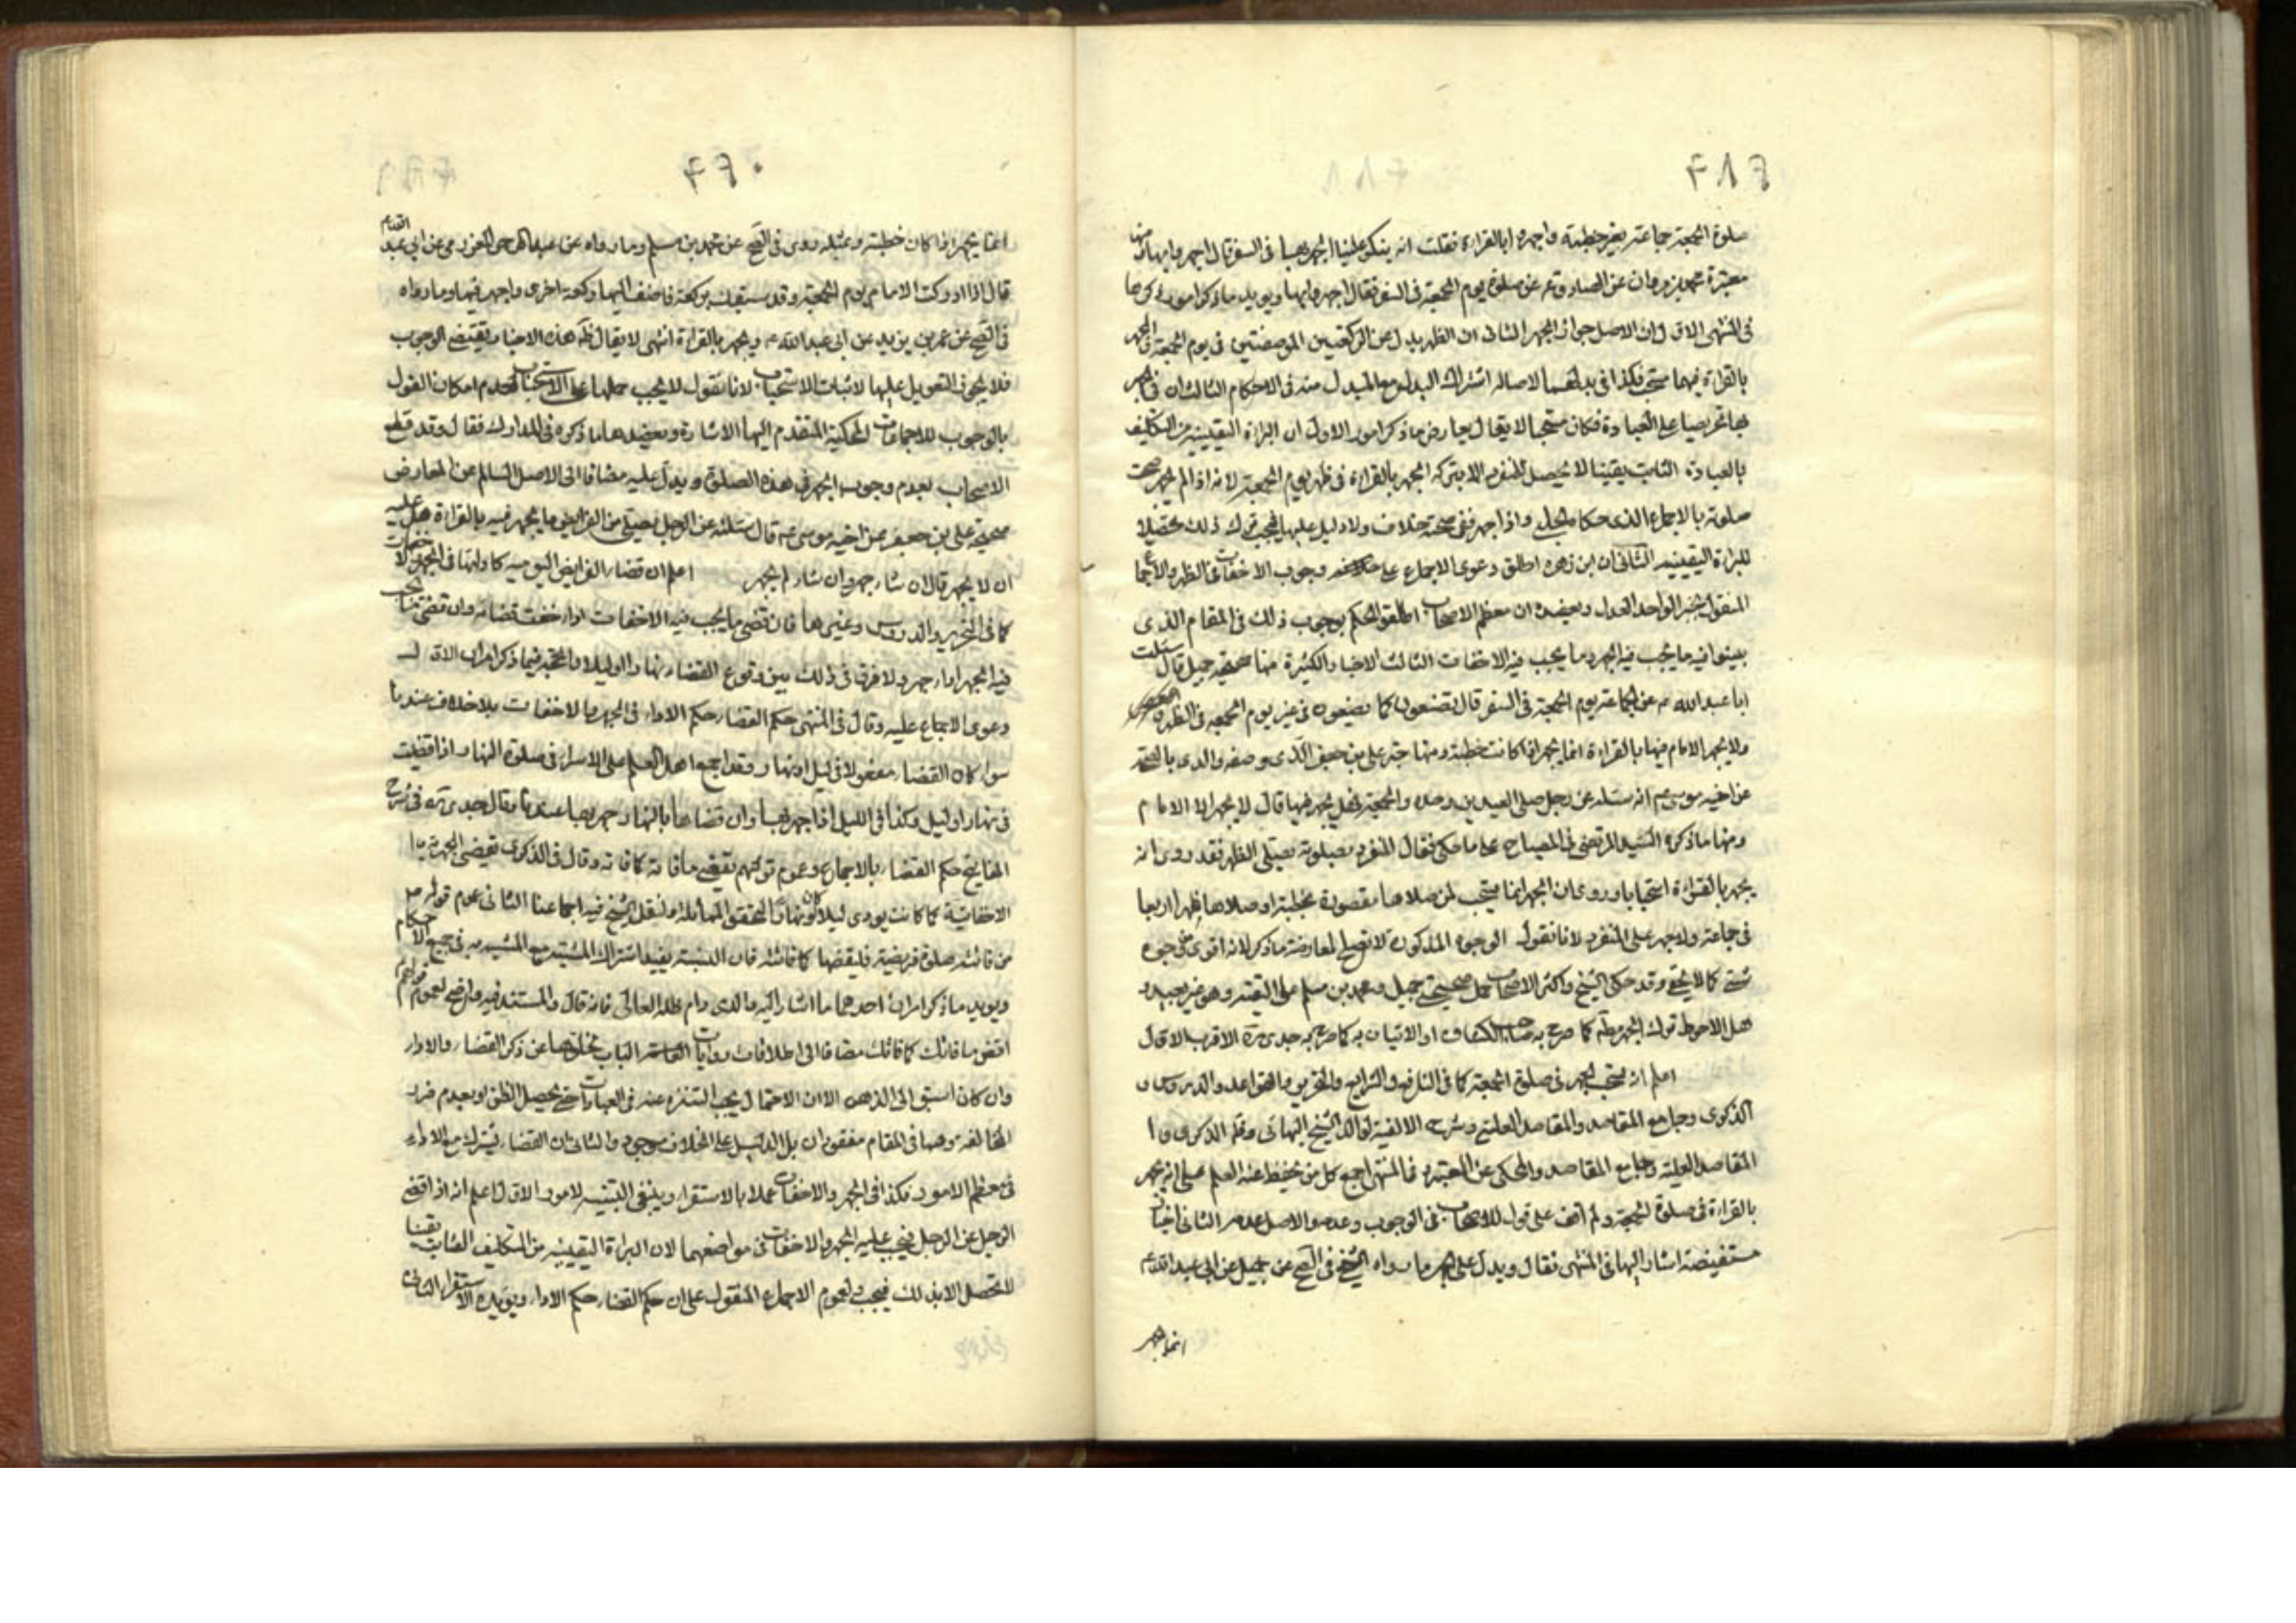 ۴۱۶
صلوة الجمعة جماعة بغير خطبة واجهروا بالقراءة فقلت انه ينكر علينا الجهر بها في السفر قال اجهروا بها ومنها
معتبرة محمد بن مروان عن الصادق ع عن صلوة يوم الجمعة في السفر فقال اجهروا بها ويويد ما ذكر امور ذكرها
في المنتهى الاول ان الاصل جواز الجهر الثانى ان الظهر بدل عن الركعتين في يوم الجمعة والجهر
بالقراءة فيهما مستحب فكذا في بدلهما لاصالة اشتراك البدل مع المبدل منه في الاحكام الثالث ان في الجهر
بها تحريصا على العبادة فكان مستحبا لا يقال يعارض ما ذكر امور الاول ان البراءة اليقينية من التكليف
بالعبادة الثابت يقينا لا يحصل للمنفرد الا بترك الجهر بالقراءة في ظهر يوم الجمعة لانه اذا لم يجهر صحت
صلوته بالاجماع الذى حكاه الحلى واذا اجهر ففى صحته خلاف ولا دليل عليها فيجب ترك ذلك تحصيلا
للبراءة اليقينية الثانى ان ابن زهرة اطلق دعوى الاجماع على وجوب الاخفات في الظهر والاجماع
المنقول بخبر الواحد العدل ويعضده ان معظم الاصحاب اطلقوا الحكم بوجوب ذلك في المقام الذى
بينوا فيه ما يجب فيه الجهر وما يجب فيه الاخفات الثالث الاخبار الكثيرة منها صحيحة جميل قال سئلت
ابا عبد الله ع عن الجماعة يوم الجمعة في السفر قال تصنعون كما تصنعون في غير يوم الجمعة في الظهر
ولا يجهر الامام فيها بالقراءة انما يجهر اذا كانت خطبة ومنها خبر على بن جعفر الذى وصفه والدى بالصحة
عن اخيه موسى ع انه سئله عن رجل صلى العيدين وحده والجمعة هل يجهر فيها قال لا يجهر الا الامام
ومنها ما ذكره السيد المرتضى في المصباح على ما حكى فقال المنفرد بصلوة يصلى الظهر فقد روى انه
يجهر بالقراءة استحبابا وروى ان الجهر انما يستحب لمن صلاها مقصورة بخطبة او صلاها ظهرا اربعا
في جماعة ولا جهر على المنفرد لانا نقول الوجوه المذكورة لا تصلح لمعارضة ما ذكر لانه اقوى من وجوه
شتى كما لا يخفى وقد حكى الشيخ واكثر الاصحاب حمل صحيحتى جميل ومحمد بن مسلم على التقية وهو غير بعيد و
هل الاحوط ترك الجهر كما صرح به صاحب الكشف او الاتيان به كما صرح به جدى ره الاقرب الاول
اعلم انه يستحب الجهر في صلوة الجمعة كما في النافع والشرايع والتحرير والقواعد والدروس و
الذكرى وجامع المقاصد والمقاصد العلية وشرح الالفية لوالد الشيخ البهائى وفي الذكرى و
المقاصد العلية وجامع المقاصد والمحكى عن المعتبر وفي المنتهى اجمع كل من يحفظ عنه العلم على انه يجهر
بالقراءة في صلوة الجمعة ولم اقف على قول للاصحاب في الوجوب وعدمه والاصل عدمه الثانى اخبار
مستفيضة اشار اليها في المنتهى فقال ويدل على الجهر ما رواه الشيخ في الصحيح عن جميل عن ابى عبد الله ع
انما يجهر
۴۶۰
انما يجهر اذا كان خطبة وبمثله روى في الصحيح عن محمد بن مسلم وما رواه عن عبد الرحمن العزرمى عن ابى عبد الله ع
قال اذا ادركت الامام يوم الجمعة وقد سبقك بركعة فاضف اليها ركعة اخرى واجهر فيها وما رواه
في الصحيح عن عمر بن يزيد عن ابى عبد الله ع ويجهر بالقراءة انتهى لا يقال ظاهر هذه الاخبار يقتضى الوجوب
فلا يجوز التعويل عليها لاثبات الاستحباب لانا نقول لا يجب حملها على الاستحباب لعدم امكان القول
بالوجوب للاجماعات المحكية المتقدم اليها الاشارة ويعضدها ما ذكره في المدارك فقال وقد قطع
الاصحاب بعدم وجوب الجهر في هذه الصلوة ويدل عليه مضافا الى الاصل السالم عن المعارض
صحيحة على بن جعفر عن اخيه موسى ع قال سئلته عن الرجل يصلى من الفرايض ما يجهر فيه بالقراءة هل عليه
ان لا يجهر قال ان شاء جهر وان شاء لم يجهر اعلم ان قضاء الفرايض اليومية كادائها في الجهر والاخفات
كما في التحرير والدروس وغيرهما فان قضى ما يجب فيه الاخفات اداء خفت قضائه وان قضى ما يجب
فيه الجهر اداء جهر ولا فرق في ذلك بين وقوع القضاء نهارا او ليلا والحجة فيما ذكر امران الاول
دعوى الاجماع عليه وقال في المنتهى حكم القضاء حكم الاداء في الجهر والاخفات بلا خلاف عندنا
سواء كان القضاء مفعولا في ليل او نهار وقد اجمع اهل العلم على الاسرار في صلوة النهار اذا قضيت
في نهار او ليل وكذا في الليل اذا جهر بها وان قضاها بالنهار جهر بها عندنا وقال جدى ره في شرح
المفاتيح حكم القضاء بالاجماع وعموم قولهم يقضى ما فاته كما فاته وقال في الذكرى
كما كانت يودى ليلا كان او نهارا لتحقق المماثلة ولنقل الشيخ فيه اجماعنا الثانى عموم قوله ص
من فاتته صلوة فريضة فليقضها كما فاتته فان التشبيه يفيد اشتراك المشبه مع المشبه به في جميع الاحكام
ويويد ما ذكر امران احدهما ما اشار اليه والدى دام ظله العالى فانه قال والمستند فيه واضح لعموم قولهم
اقض ما فاتك كما فاتك مضافا الى اطلاقات روايات الباب عن ذكر القضاء والاداء
وان كان اسبق الى الذهن الا ان الاحتمال يجب التنزه عنه في العبادات حتى يحصل الظن او بعدم
المخالفة وهما في المقام مفقودان بل الدليل على الخلاف موجود والثانى ان القضاء يشترك مع الاداء
في معظم الامور فكذا في الجهر والاخفات عملا بالاستقراء وينبغى التنبيه لامور الاول اعلم انه اذا قضى
الرجل عن الرجل فيجب عليه الجهر والاخفات في مواضعهما لان البراءة اليقينية من التكليف الثابت يقينا
لا تحصل الا بذلك فيجب ولعموم الاجماع المنقول على ان حكم القضاء حكم الاداء ويويده الاستقراء الثانى